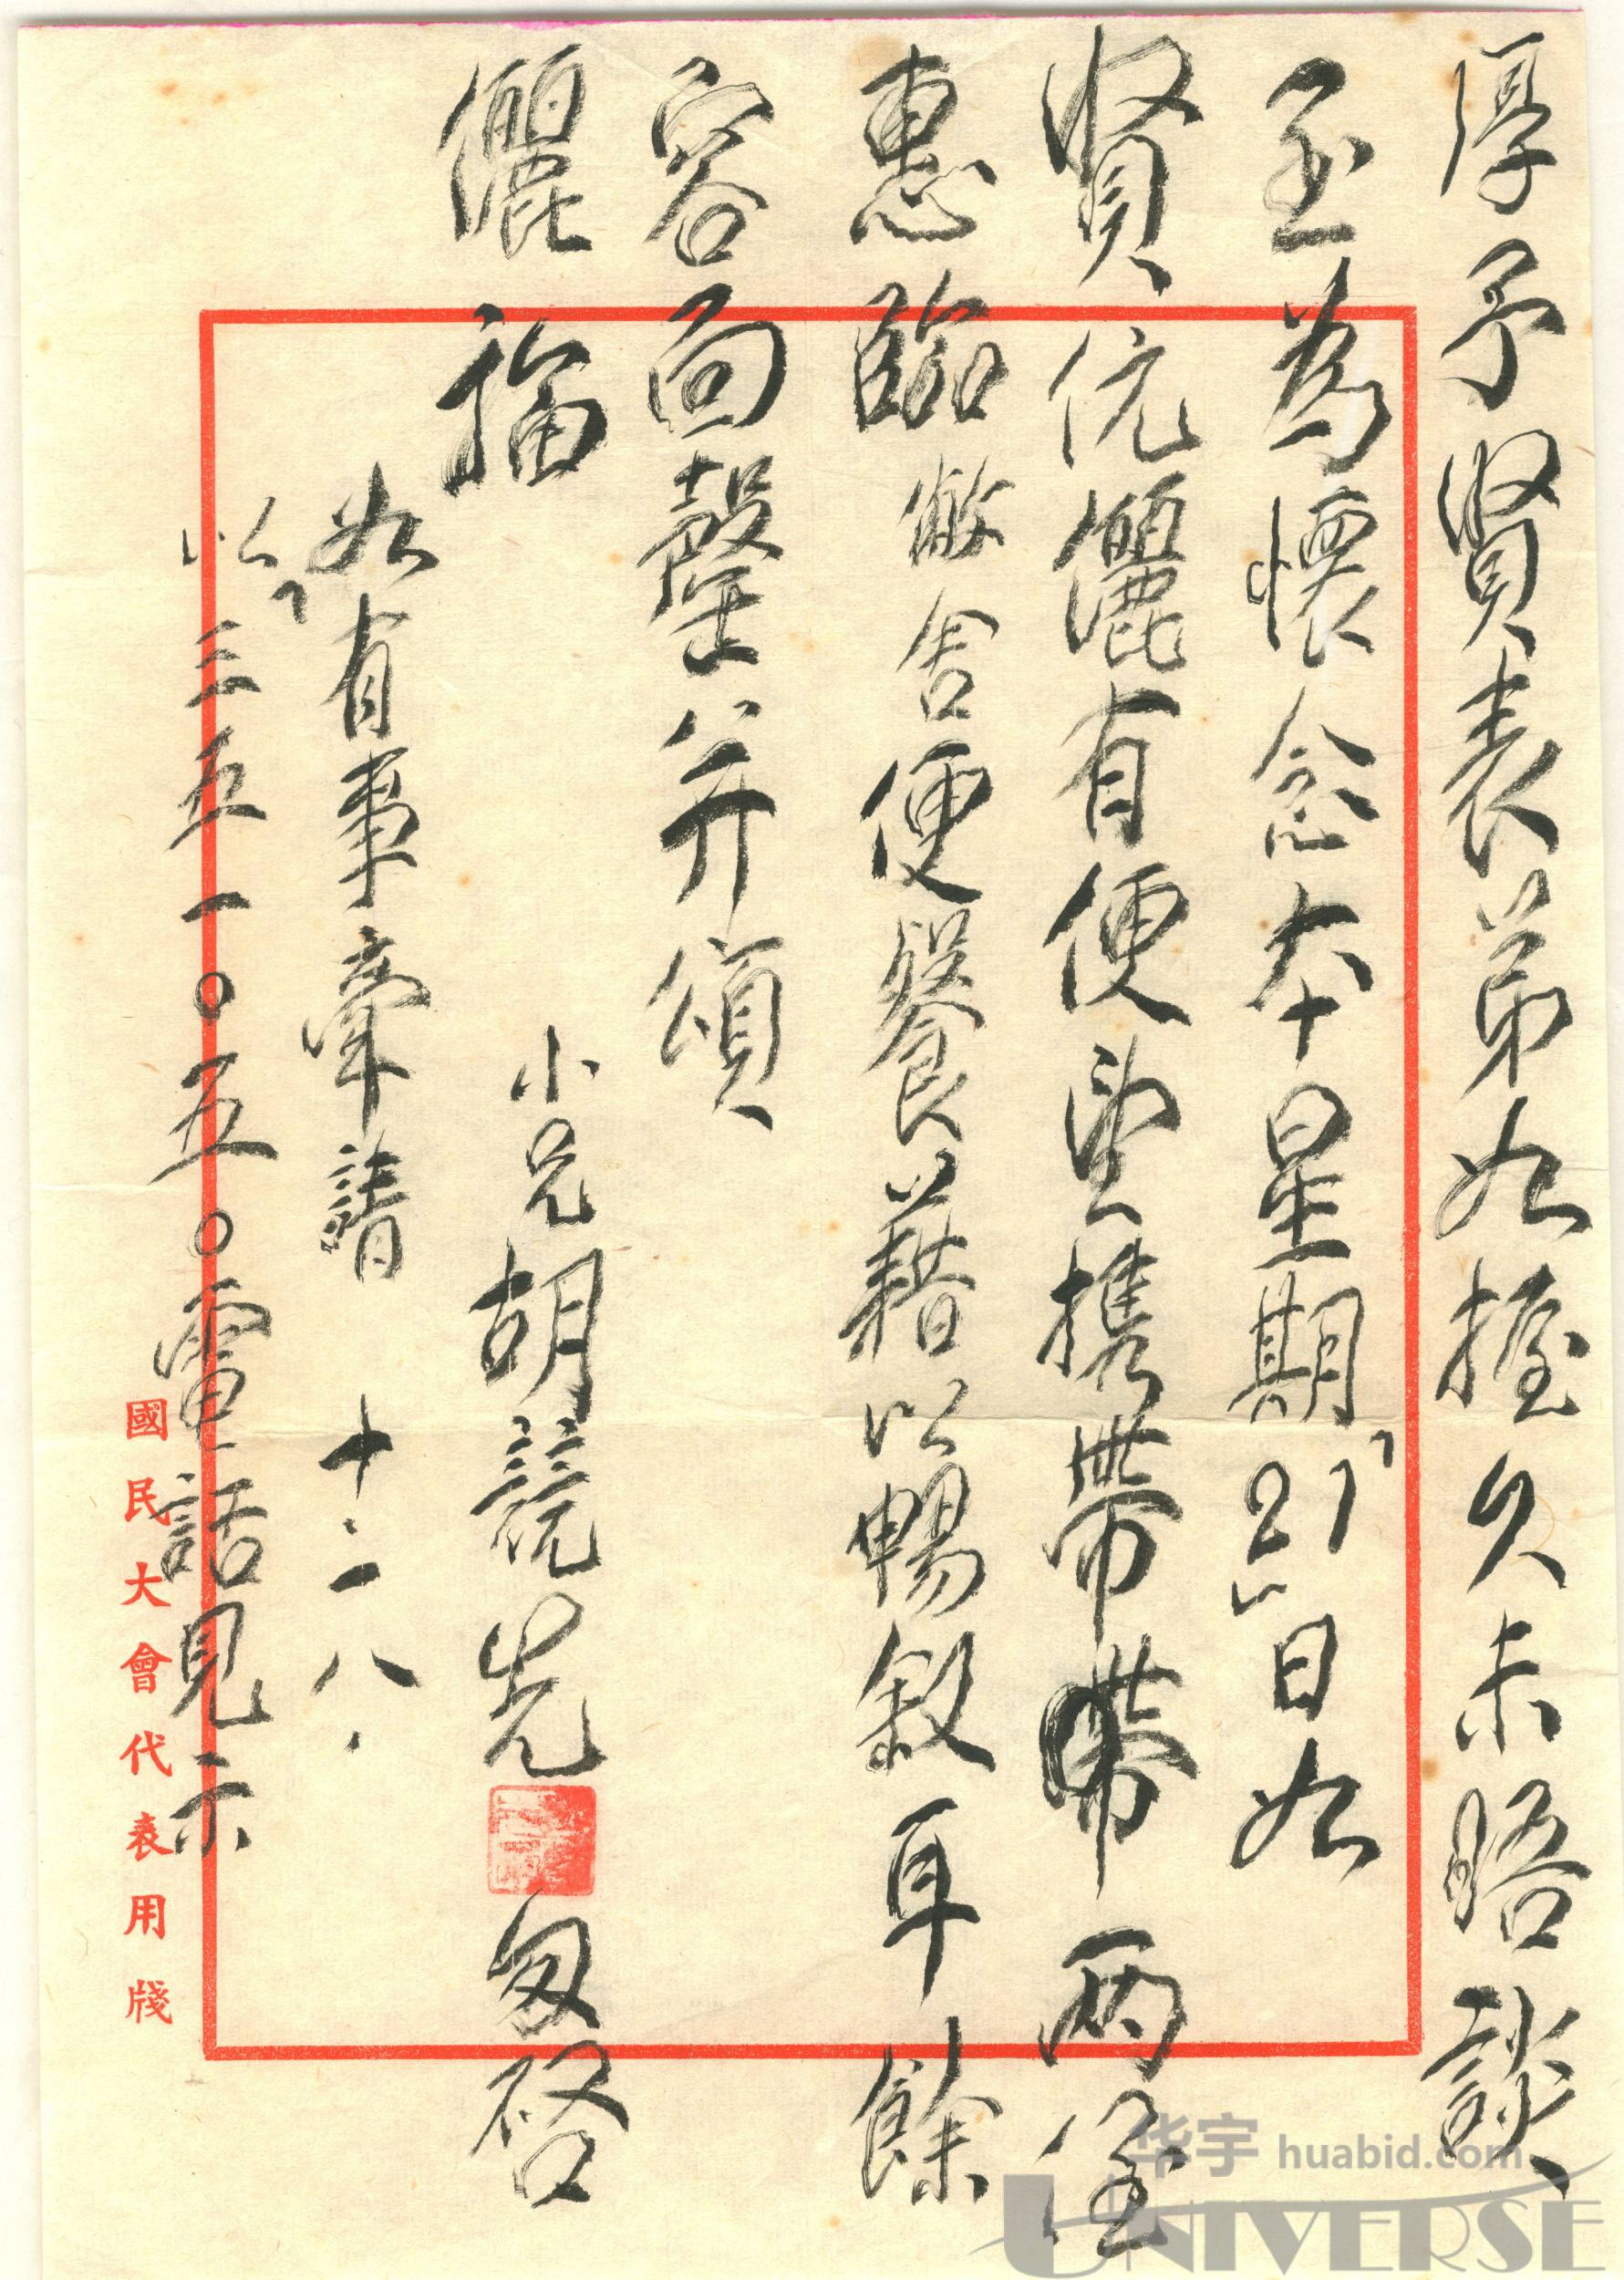 厚予賢表弟如握久未晤談
至為懷念本星期「21」日如
賢伉儷有便望攜帶兩侄
惠臨敝舍便餐藉以暢敘耳餘
容面罄並頌
儷福
小兄胡競先匆啓
如有事牽請 十、二八、
以「三五一〇五〇電話見示
國民大會代表用牋
华宇 huabid.com
UNIVERSE